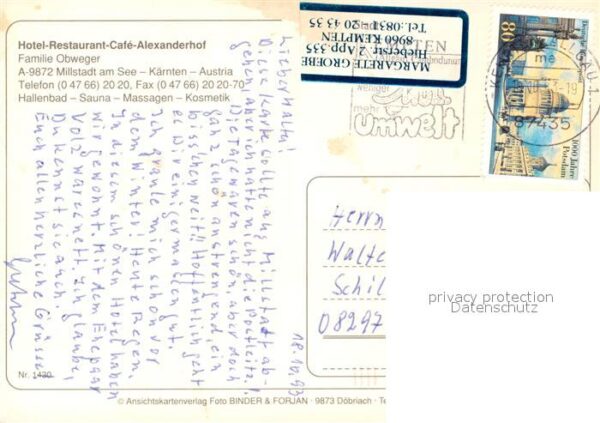 Hotel-Restaurant-Café-Alexanderhof
Familie Obweger
A-9872 Millstadt am See – Kärnten – Austria
Telefon (0 47 66) 20 20, Fax (0 47 66) 20 20-70
Hallenbad – Sauna – Massagen – Kosmetik
MARGARETE GROEBE
Hieberstr. 2 App.335
8960 KEMPTEN
Tel.:0831 20 43 35
weniger
Müll
mehr
umwelt
80
1000 Jahre
Potsdam
87435
18.10.93
Lieber Walter!
Diese Karte sollte aus Millstatt ab-
gehen, aber ich hatte nicht die Postleitz.!
Die Tage waren schön, aber doch
ganz schön anstrengend, ein
bisschen weit!! Hoffentlich geht
es Wir einigermaßen gut.
Ich graule mich schon vor
dem Winter! Heute Regen.
In diesem schönen Hotel haben
wir gewohnt. Mit dem Ehepaar
Volz waren nett. Ich glaube,
Du kennst sie auch.
Euch allen herzliche Grüsse
Herrn
Walte
Schil
08297
privacy protection
Datenschutz
Nr. 1430
© Ansichtskartenverlag Foto BINDER & FORJAN · 9873 Döbriach · Te